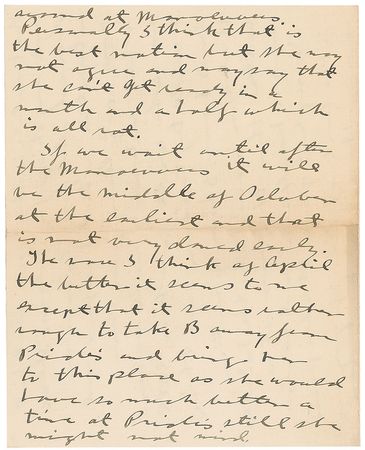 around at Manoeuvers.
Personally I think that is
the best notion but she may
not agree and may say that
she can't get ready in a
month and a half which
is all rot.
If we wait until after
the Manoeuvers it will
be the middle of October
at the earliest and that
is not very d early.
The more I think of
the better it seems to me
except that it seems rather
rough to take B away from
Prides and bring her
to this place as she would
have so much better a
time at Prides still she
might not mind.